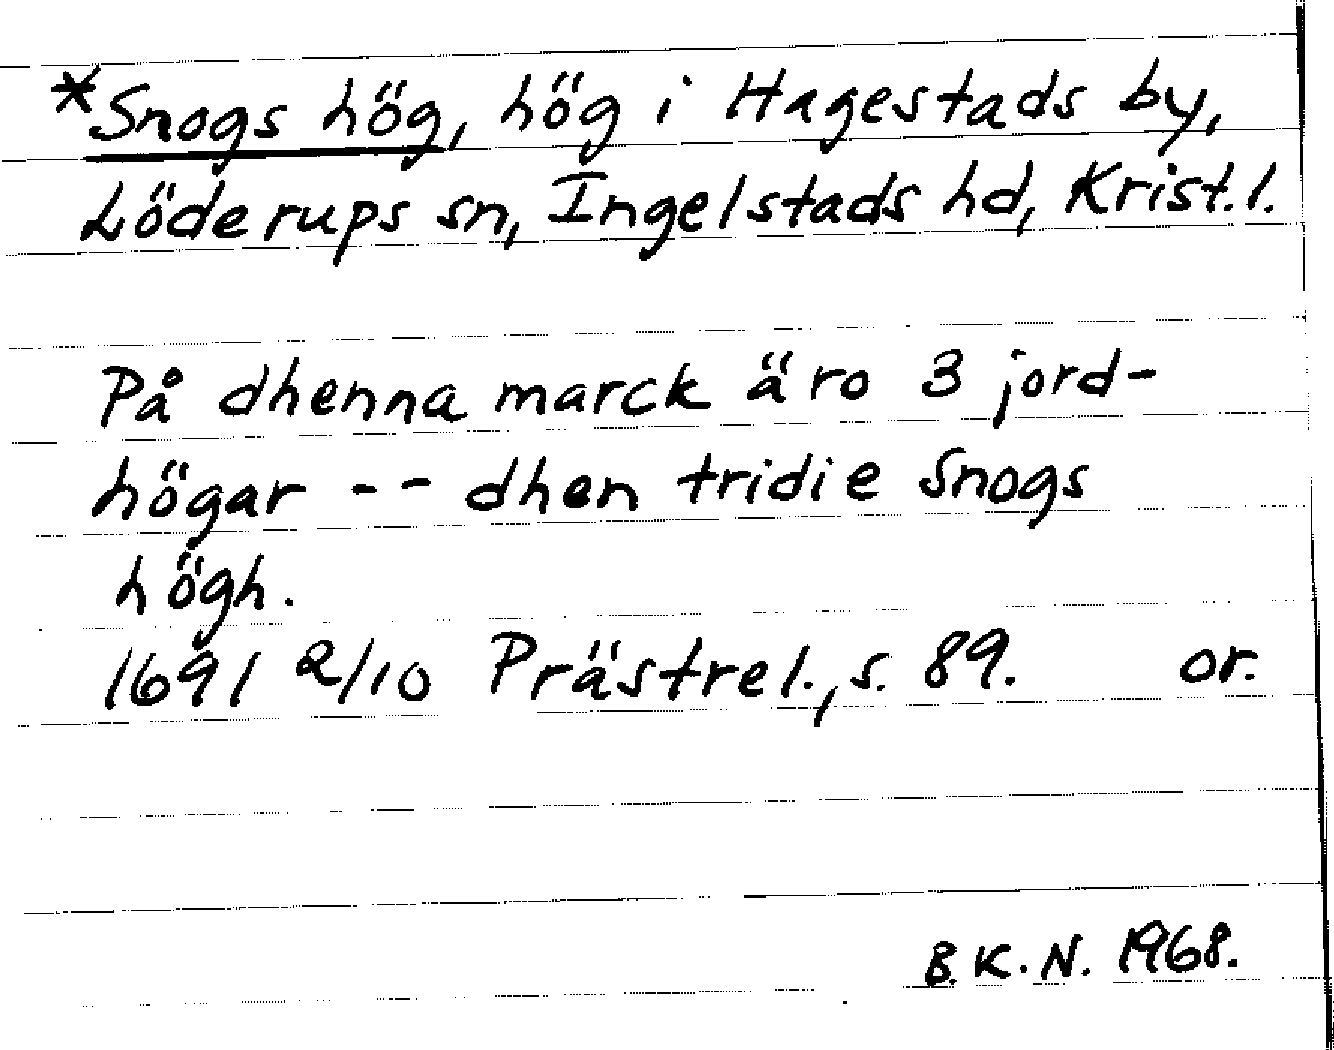 *Snogs hög, hög i Hagestads by,
Löderups sn, Ingelstads hd, Krist.l.
På dhenna marck äro 3 jord-
högar -- dhen tridie Snogs
högh.
1691 2/10 Prästrel., s. 89. or.
B.K.N. 1968.